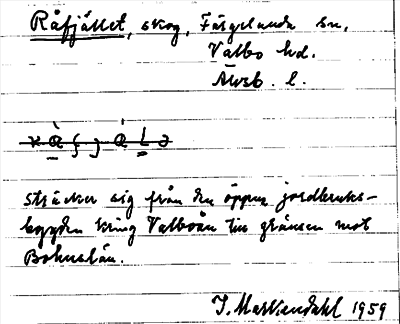 Råfjället, skog, Färgelanda sn,
Valbo hd.
Älvsb. l.
sträcker sig från den öppna jordbruks-
bygden kring Valboån till gränsen mot
Bohuslän.
J. Markendahl 1959